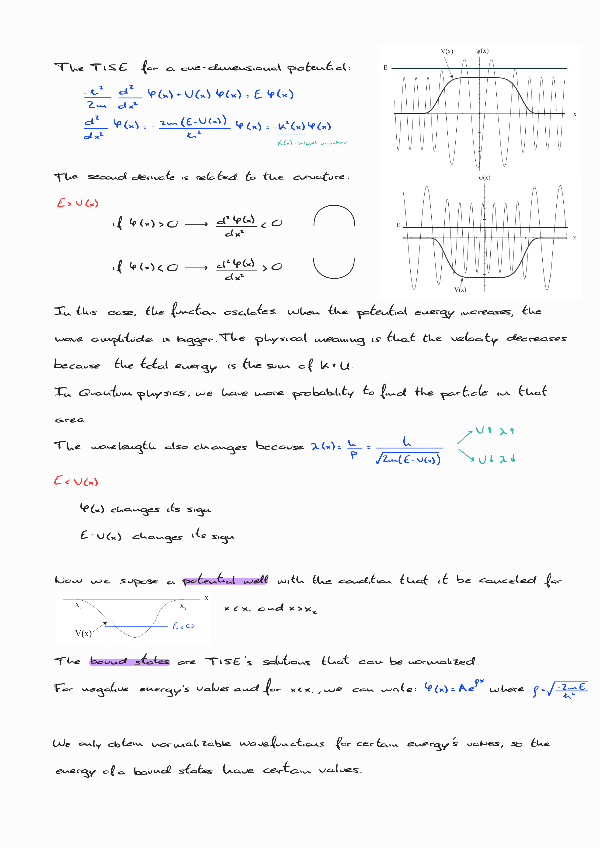 The TISE for a one-dimensional potential:
-ħ²/2m d²/dx² φ(x) + U(x) φ(x) = E φ(x)
d²/dx² φ(x) = - 2m(E-U(x))/ħ² φ(x) = -k²(x) φ(x)
The second derivate is related to the curvature:
E > U(x)
if φ(x) > 0 → d²φ(x)/dx² < 0
if φ(x) < 0 → d²φ(x)/dx² > 0
V(x) φ(x)
E
x
φ(x)
E
x
V(x)
In this case, the function oscilates. When the potential energy increases, the
wave amplitude is bigger. The physical meaning is that the velocity decreases
because the total energy is the sum of K+U.
In Quantum physics, we have more probability to find the particle in that
area
The wavelength also changes because λ(x) = h/p = h/√2m(E-U(x))
U↑ λ↑
U↓ λ↓
E < U(x)
φ(x) changes its sign
E-U(x) changes its sign
Now we supose a potential well with the condition that it be canceled for
x < x₁ and x > x₂
x₁ x₂ x
V(x) E<0
The bound states are TISE's solutions that can be normalized
For negative energy's values and for x<x₁, we can write: φ(x) = Ae^ρx where ρ = √-2mE/ħ²
We only obtein normalizable wavefunctions for certain energy's values, so the
energy of a bound states have certain values.